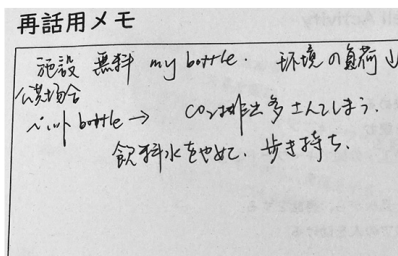 再話用メモ
施設 無料 my bottle. 環境の負荷↓
公共場合
ペット bottle → CO2排出多 してしまう.
飲料水をやめて. 歩き持ち.